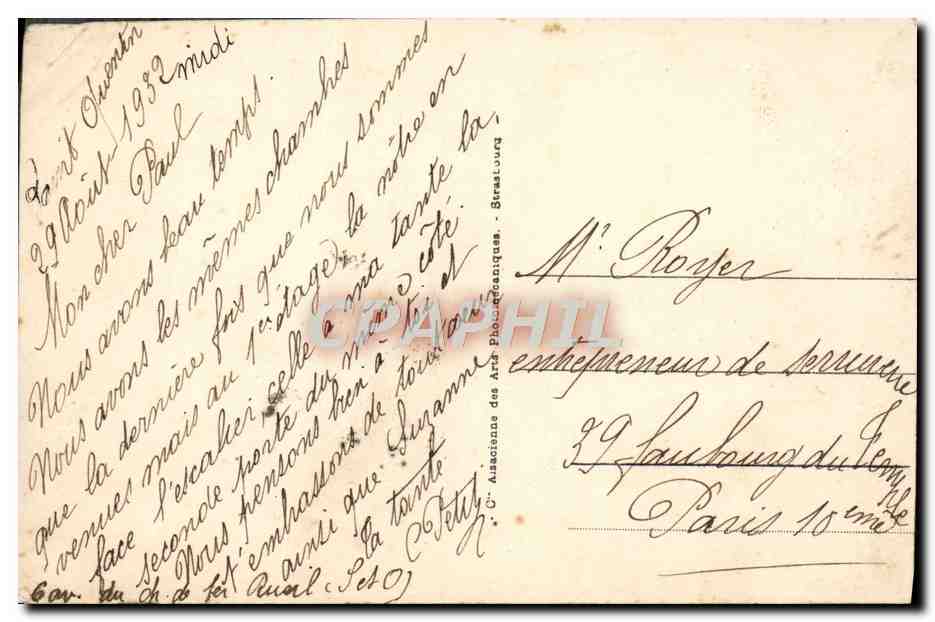 Saint Quentin
29 Août 1932 midi
Mon cher Paul
Nous avons beau temps.
Nous avons les mêmes chambres
que la dernière fois que nous sommes
venues mais au 1er étage, la nôtre en
face l'escalier celle à ma tante la
seconde porte du même côté.
Nous pensons bien à toi et
t'embrassons de tout cœur
ainsi que Suzanne
ta tante
Petit
6 av. du ch. de fer Rueil (S et O)
Cie Alsacienne des Arts Photomécaniques. - Strasbourg
CPAPHIL
Mr Royer
entrepreneur de serrurerie
39 faubourg du Temple
Paris 10eme